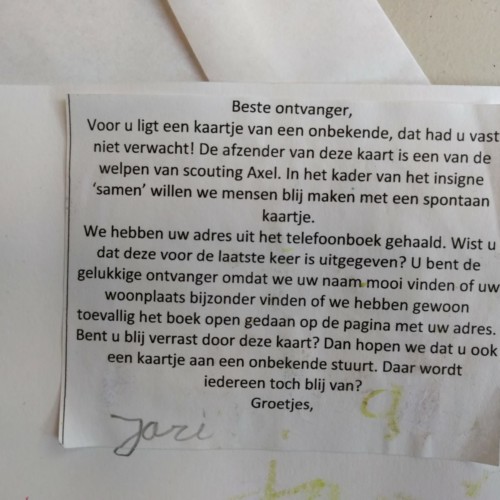 Beste ontvanger,
Voor u ligt een kaartje van een onbekende, dat had u vast
niet verwacht! De afzender van deze kaart is een van de
welpen van scouting Axel. In het kader van het insigne
‘samen’ willen we mensen blij maken met een spontaan
kaartje.
We hebben uw adres uit het telefoonboek gehaald. Wist u
dat deze voor de laatste keer is uitgegeven? U bent de
gelukkige ontvanger omdat we uw naam mooi vinden of uw
woonplaats bijzonder vinden of we hebben gewoon
toevallig het boek open gedaan op de pagina met uw adres.
Bent u blij verrast door deze kaart? Dan hopen we dat u ook
een kaartje aan een onbekende stuurt. Daar wordt
iedereen toch blij van?
Groetjes,
Jari